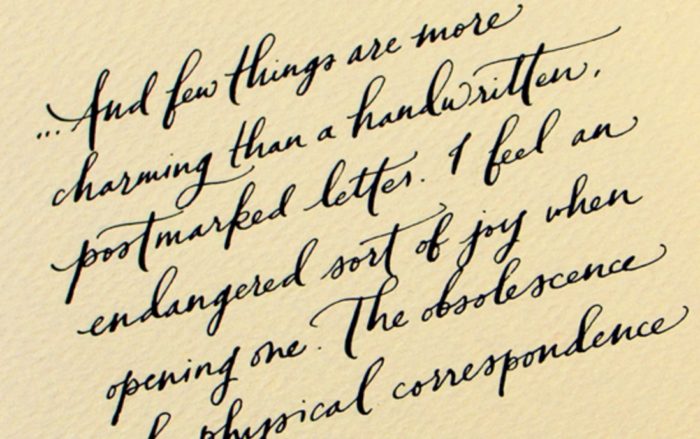 ...And few things are more
charming than a handwritten,
postmarked letter. I feel an
endangered sort of joy when
opening one. The obsolescence
physical correspondence